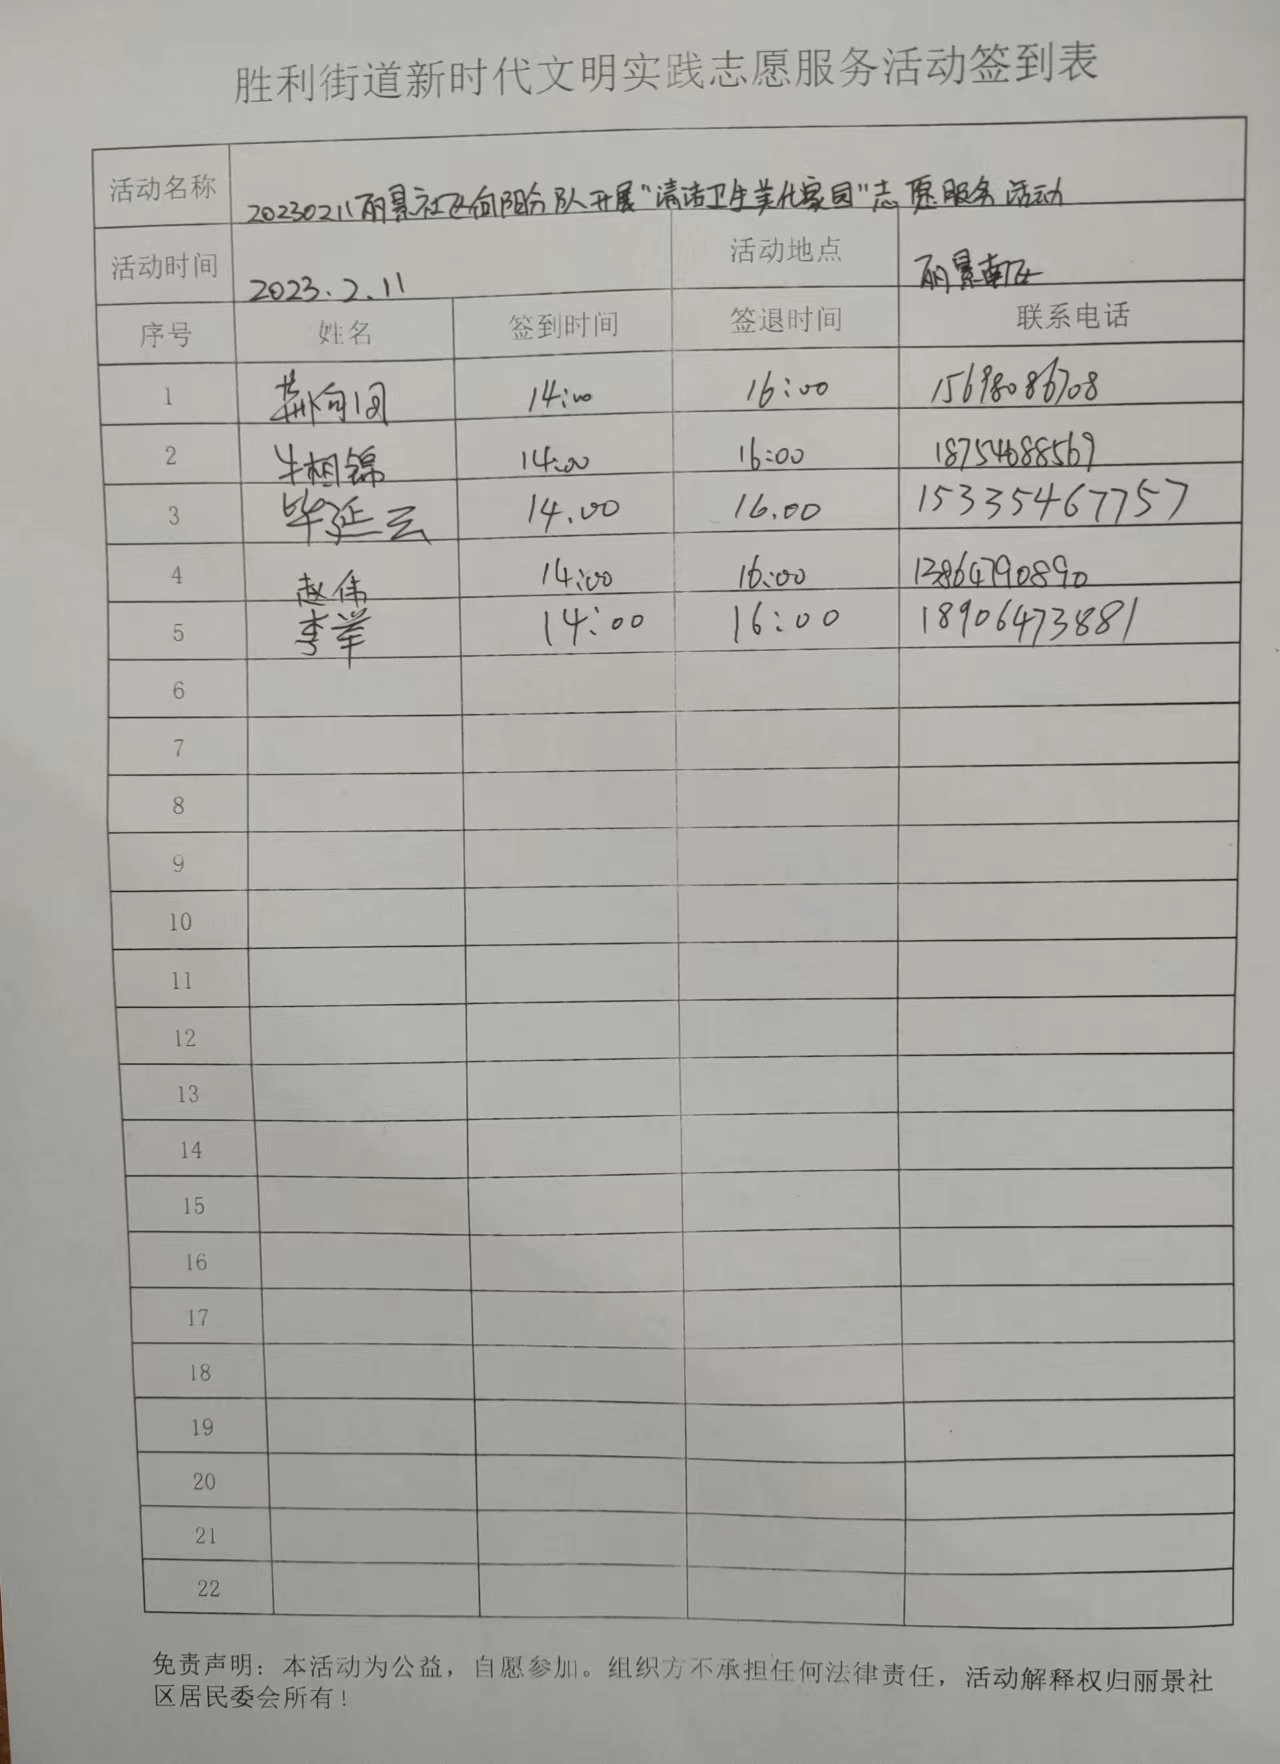 胜利街道新时代文明实践志愿服务活动签到表
活动名称 20230211丽景社区向阳分队开展"清洁卫生美化家园"志愿服务活动
活动时间 2023.2.11 活动地点 丽景南区
序号 姓名 签到时间 签退时间 联系电话
1 14:00 16:00 15698086708
2 牛相锦 14:00 16:00 18754688569
3 毕延云 14.00 16.00 15335467757
4 赵伟 14:00 16:00 13864790890
5 李举 14:00 16:00 18906473881
6
7
8
9
10
11
12
13
14
15
16
17
18
19
20
21
22
免责声明：本活动为公益，自愿参加。组织方不承担任何法律责任，活动解释权归丽景社
区居民委会所有！